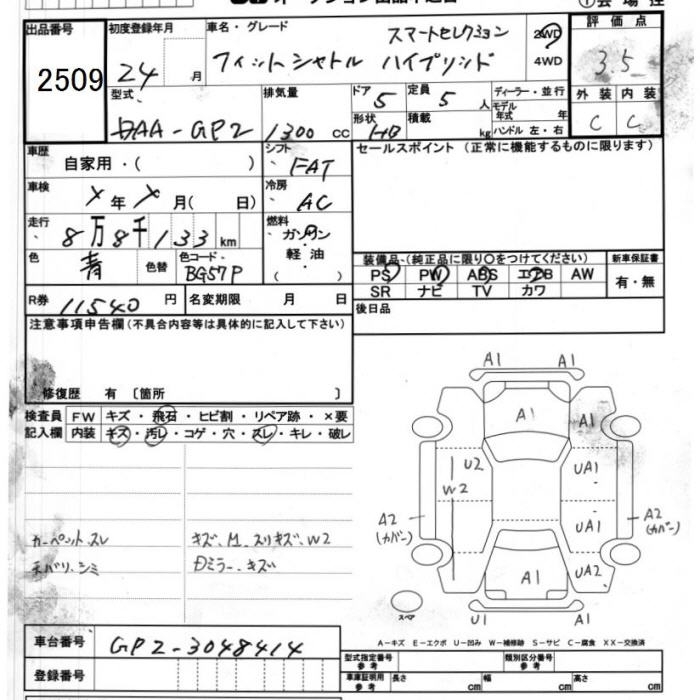 出品番号
2509
初度登録年月
24 月
車名・グレード
スマートセレクション
フィットシャトル ハイブリッド
2WD
4WD
評価点
3.5
型式
DAA-GP2
排気量
1300 cc
ドア 5
定員 5 人
形状 HB
積載 kg
ディーラー・並行
モデル年式 年
ハンドル 左・右
外装 内装
C C
車歴
自家用・( )
シフト
FAT
セールスポイント (正常に機能するものに限ります)
車検
X 年 X 月( 日)
冷房
AC
走行
8万8千133 km
燃料
ガソリン
軽油
( )
色
青
色替
色コード
BG57P
装備品 (純正品に限り〇をつけてください)
新車保証書
PS PW ABS エアB AW
有・無
SR ナビ TV カワ
R券 11540 円
名変期限 月 日
後日品
注意事項申告欄(不具合内容等は具体的に記入して下さい)
修復歴 有 〔箇所 〕
検査員 FW キズ・飛石・ヒビ割・リペア跡・×要
記入欄 内装 キズ・汚レ・コゲ・穴・スレ・キレ・破レ
カーペット.スレ
キズ、M.スリキズ、W2
天バリ.シミ
Dミラー.キズ
A1 A1
A1 A1
U2 UA1
W2
A2 A2
(カバー) (カバー)
UA1
A1 UA2
スペア
U1 A1
A-キズ E-エクボ U-凹み W-補修跡 S-サビ C-腐食 XX-交換済
車台番号 GP2-3048414
登録番号
型式指定番号 参考
類別区分番号 参考
車庫証明用 参考
長さ cm 幅 cm 高さ cm